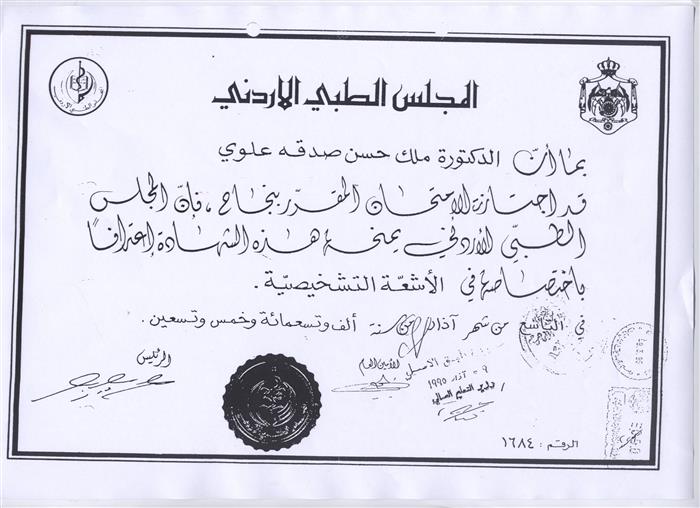 المجلس الطبي الاردني
بما أنّ الدكتورة ملك حسن صدقه علوي
قد اجتازت الإمتحان المقرّر بنجاح ، فإنّ المجلس
الطبّي الأردني يمنحها هذه الشهادة إعترافًا
باختصاصها في الأشعّة التشخيصيّة .
في التاسع من شهر آذار من سنة ألف وتسعمائة وخمس وتسعين .
الرئيس
الأمين العام
طبق الاصل
٩ - آذار ١٩٩٥
الرقم : ١٦٨٤